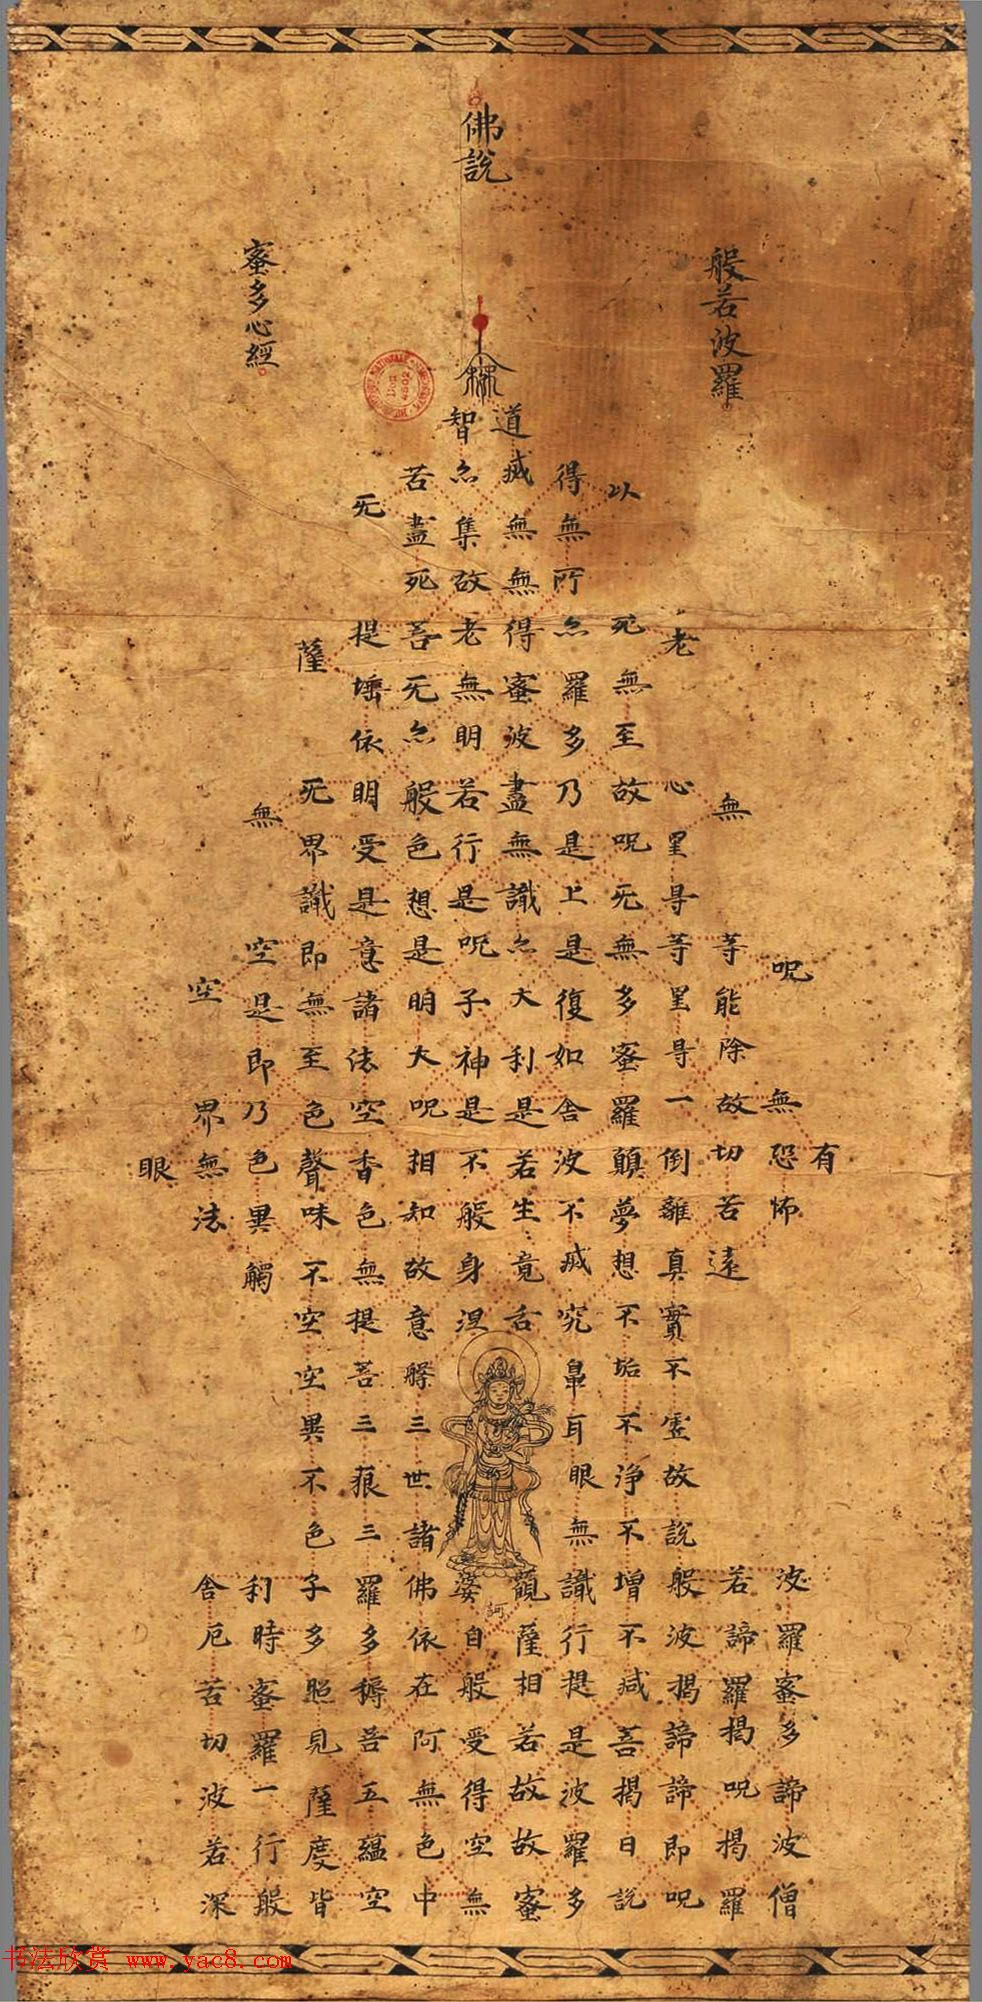 佛說
般若波羅
蜜多心經
有
呪無恐怖波羅蜜多諦波僧
無等能除故切苦遠若諦羅揭呪揭羅
老心罣㝵等等罣㝵一倒離真實不虛故說般波揭諦諦即呪
以死無至故呪无無多蜜羅顛夢想不垢不淨不增不減菩揭日說
得無所亦羅多乃是上是復如舍波不滅究鼻耳眼無識行提是波羅多
道滅無無得蜜波盡無識亦大利是若生竟舌觀薩相若故故蜜
訶
智亦集故老無明若行是呪子神是不般身涅婆自般受得空無
苦盡死菩无亦般色想是明大呪相知故意槃三世諸佛依在阿無色中
无提埵依明受是意諸法空香色無提菩三藐三羅多耨菩五蘊空
薩无界識即無至色聲味不空空異不色子多照見薩度皆
無空是即乃色異觸利時蜜羅一行般
空界無法舍厄苦切波若深
眼
书法欣赏 www.yac8.com